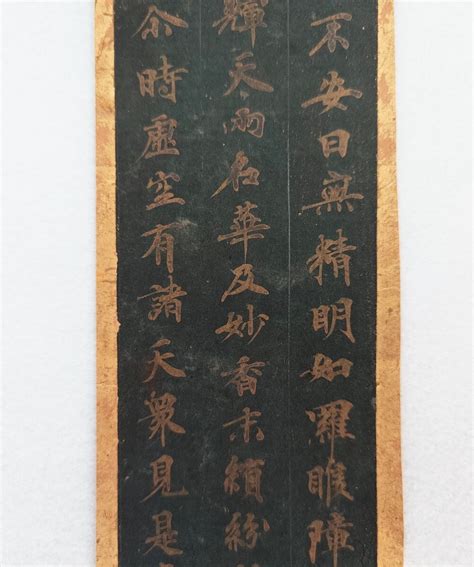 不安日無精明如羅睺障
輝天雨名華及妙香末繽紛
尒時虛空有諸天衆見是